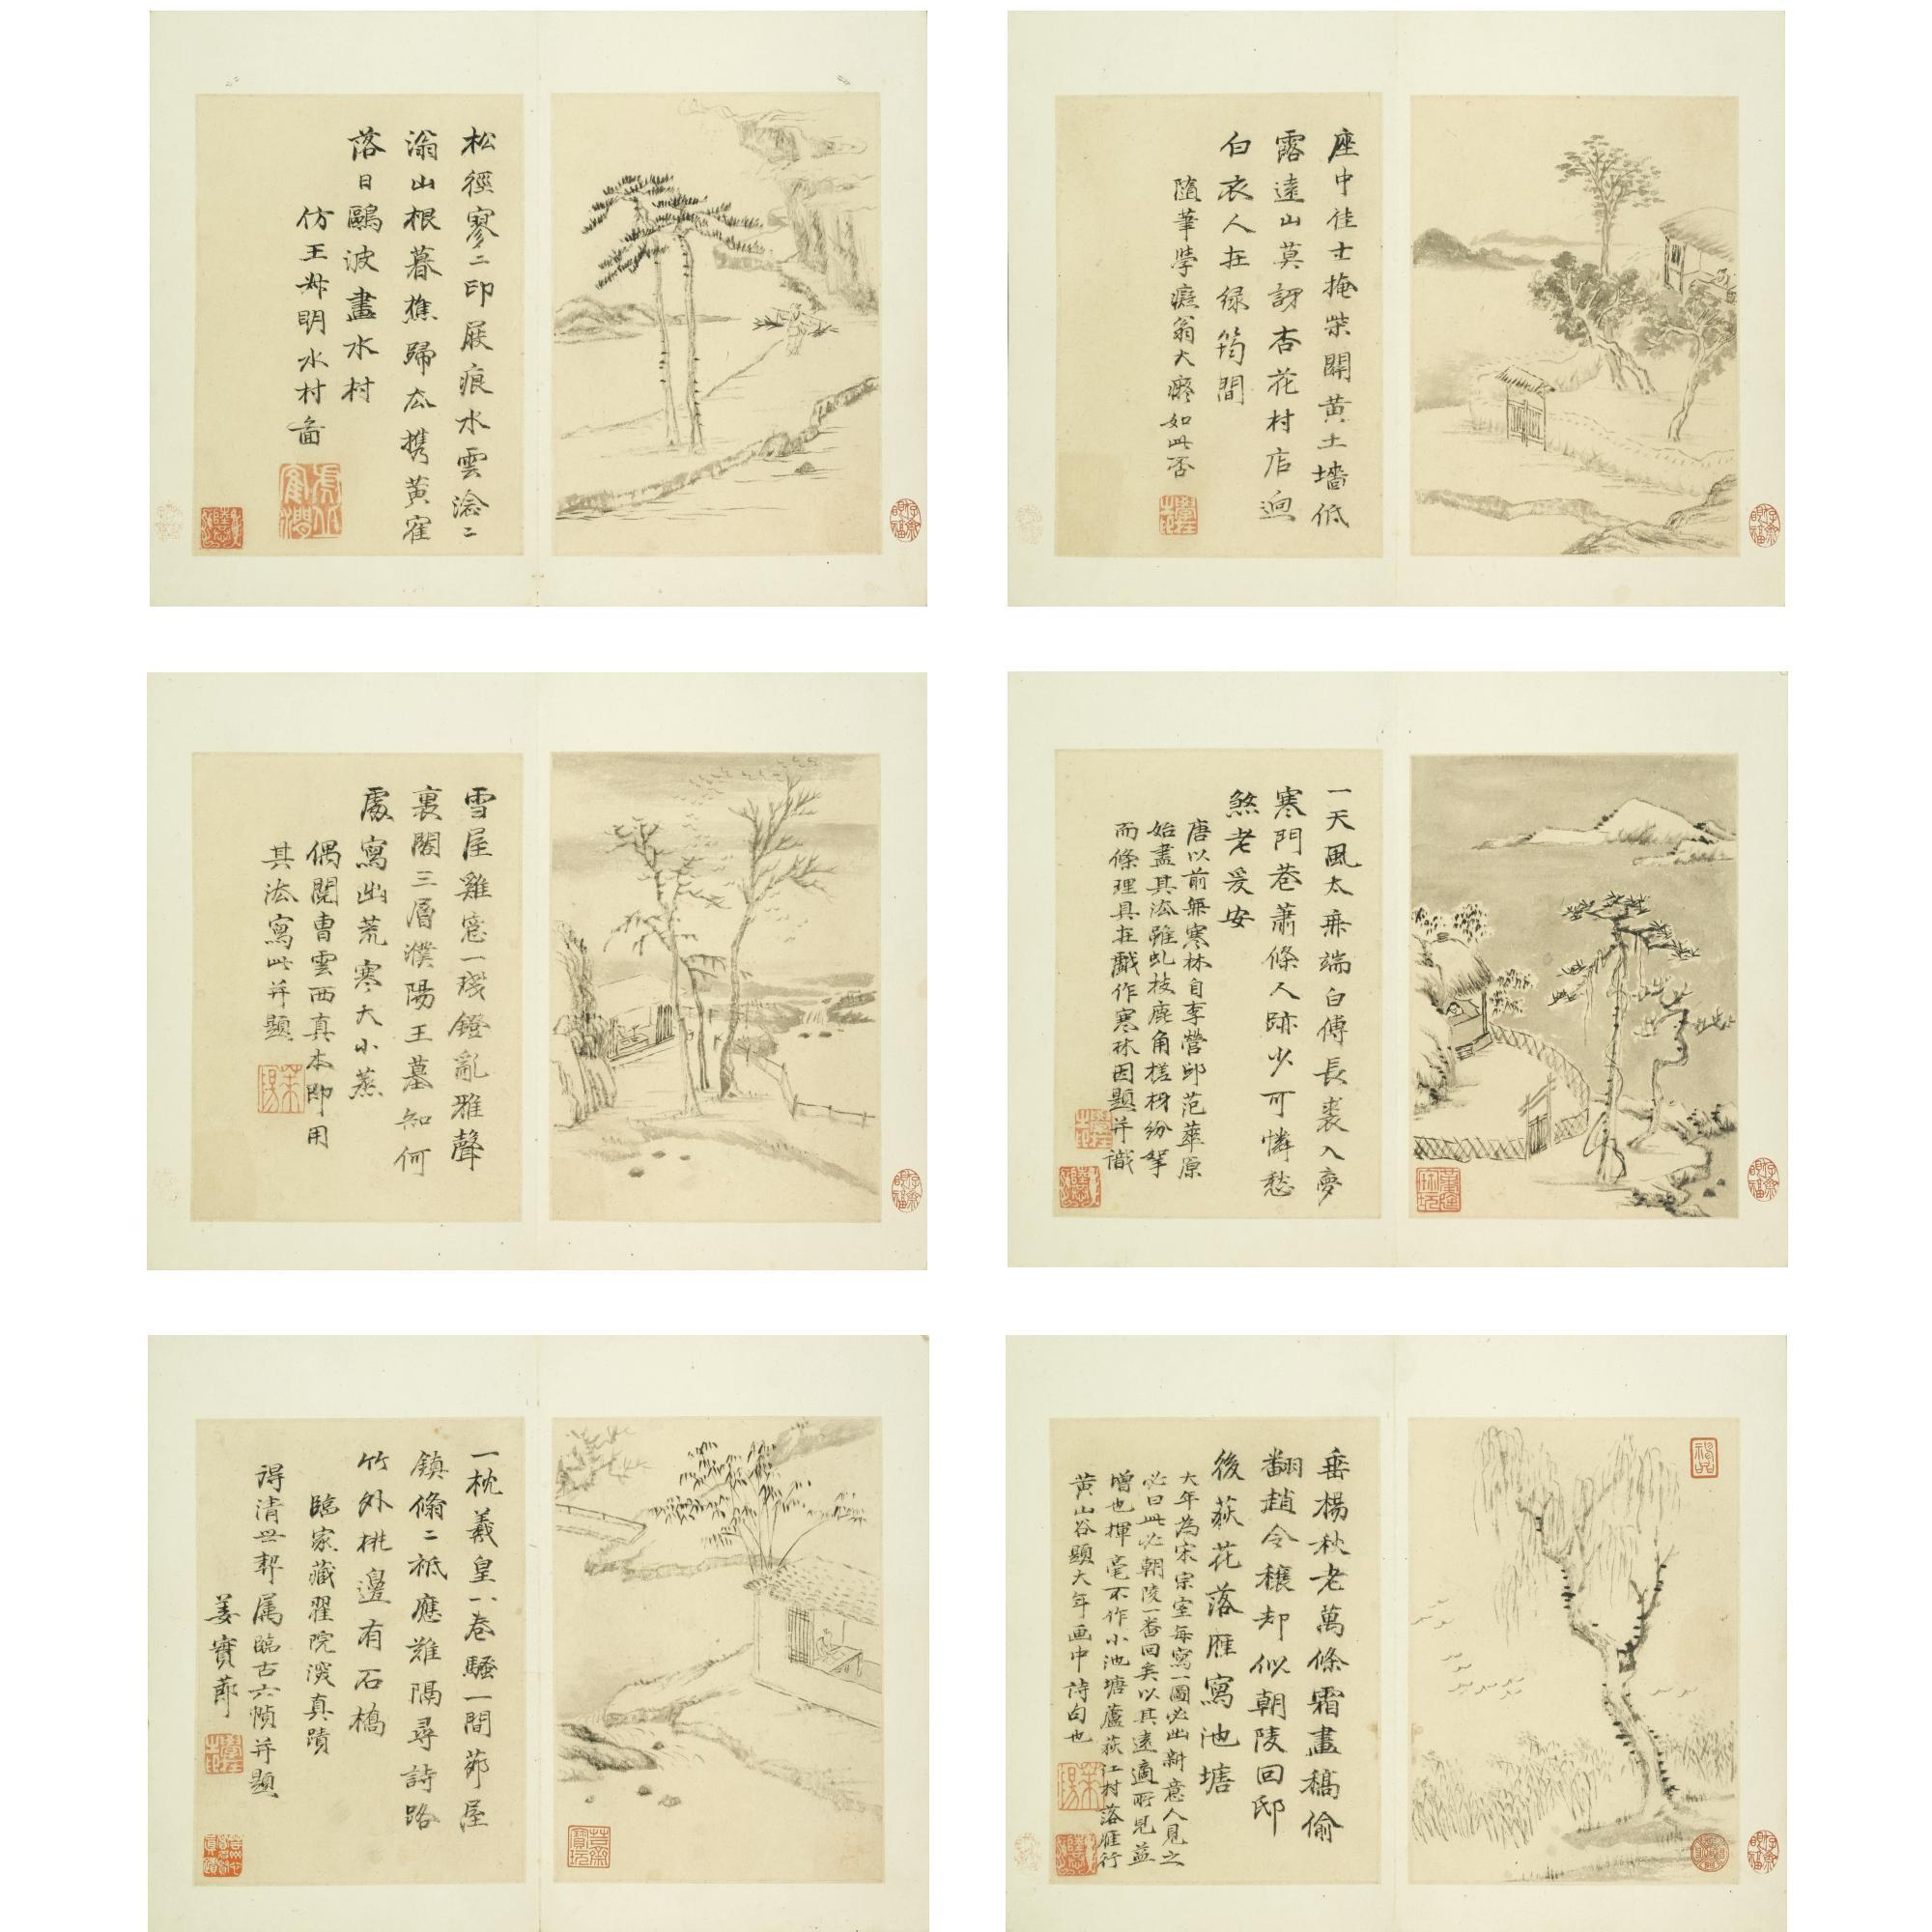 座中佳士掩柴關黃土墻低
露遠山莫訝杏花村店逈
白衣人在绿筠間
隨筆學癡翁大癡如此否
松徑寥二印屐痕水雲渰二
滃山根暮樵歸厺携黃寉
落日鷗波畫水村
仿王叔明水村啚
一天風太無端白傅長裘入夢
寒門巷蕭條人跡少可憐愁
煞老爰安
唐以前無寒林自李營邱范華原
始盡其法雖虬枝鹿角槎枒紛拏
而條理具在戲作寒林因題并識
雪屋雞窓一琖鐙亂雅聲
裏閣三層濮陽王墓知何
處寫出荒寒大小蒸
偶閱曹雲西真本即用
其法寫此并題
垂楊秋老萬條霜畫稿偷
翻趙令穰却似朝陵回邸
後荻花落雁寫池塘
大年為宋宗室每寫一圖必出新意人見之
必曰此必朝陵一番回矣以其遠適所見益
增也揮毫不作小池塘蘆荻江村落雁行
黄山谷題大年画中詩句也
神品
一枕羲皇一卷騷一間茆屋
鎮翛二祗應難隔尋詩路
竹外桃邊有石橋
臨家藏翟院深真蹟
得清世契属臨古六幀并題
姜實節